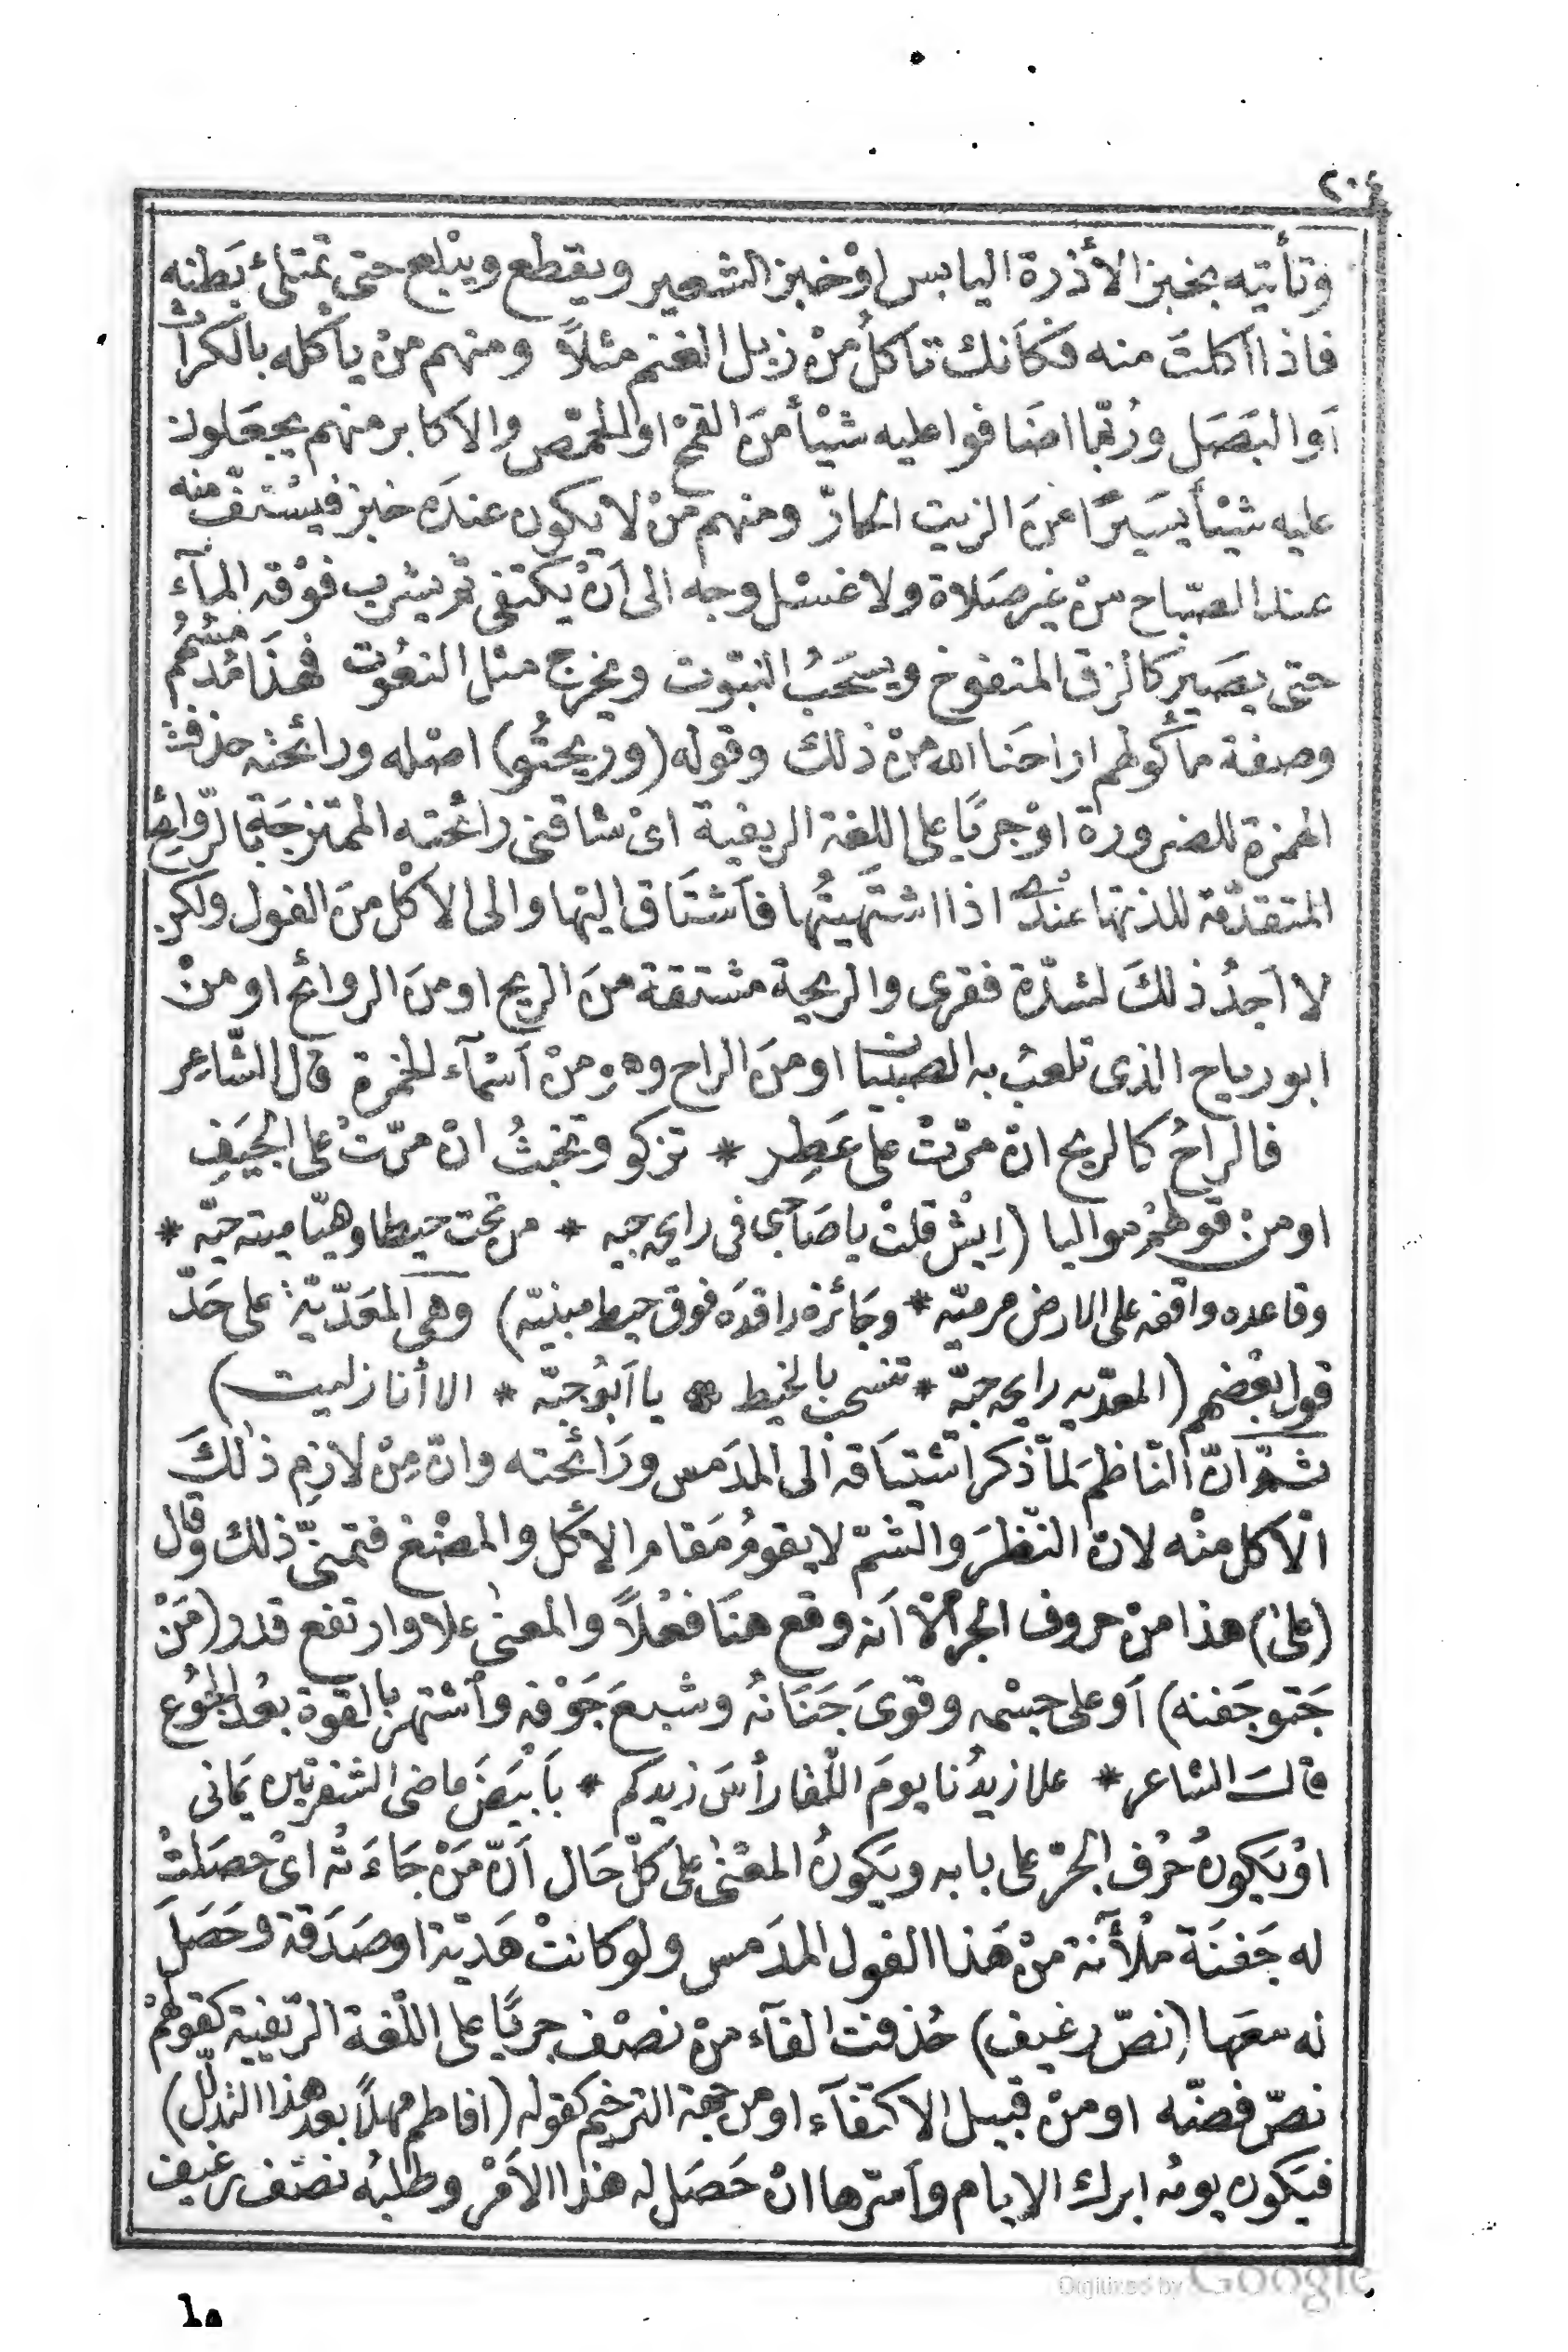 ٢٠٤
وتأتيه بخبز الأذرة اليابس اوْ خبز الشعير ويقطع ويبْلع حتى تمتلئ بَطنه
فاذا اَكلتَ منه فكَأَنك تاكلُ منْ زبل الغنم مثلاً ومنهم منْ يأكله بالكراث
اَو البَصَل ورُبّما اضَافوا عليه شيْأً منَ القمْح او الحمّص والاكابر منهم يجعَلون
عليه شيْأً يسَيرًا منَ الزيت الحارّ ومنهم منْ لا يكون عندَه خبز فيَسْتفّ منه
عند الصّباح منْ غير صَلاة ولا غسْل وجه الى اَنْ يكتفى ثم يشرب فوْقه المآء
حتى يصَير كالزق المنفوخ ويسحَبُ النبّوت ويخرج مثل النعُوت فهذَا مُدمّسهُم
وصفة مأكُولهم اراحَنا الله منْ ذلك وقوله (وريحتُو) اصْله ورائحته حذفت
الهمزة للضرورة اوْ جريًا على اللغة الريفية اىْ شاقنى رائحته الممتزجَة بالرّوائح
المتقدّمة للذتها عنْدى اذا اشتَهيتُها فاَشتَاق اليْها والى الاكْل منَ الفول ولكن
لا اَجدُ ذلكَ لشدّة فقرى والريحة مشتقة منَ الريح او منَ الروائح او منْ
ابو رياح الذى تلعبُ به الصبْيَان او منَ الراح وهو منْ اَسْمآء الخمرة قال الشّاعِر
فالراحُ كالريح انْ مرّتْ علَى عَطِر * تزكو وتخبثُ انْ مرّتْ على الجيَفِ
او من قولهمْ مواليا (اِيشْ قلتْ يا صَاحبى فى رايحه جيه * من تحت حيط وهيّا ميته حيّه *
وقاعده واقفه على الارض مرميّه * وجَائزه راقدَه فوق حيط مبنيّه) وهى المعَدّيّة على حَدّ
قول بعْضهم (المعدّيه رايحه جيّه * تنسحب بالخيط * يا اَبُو جبّه * الا أنا زليت)
ثمّ انّ النّاظمَ لمّا ذكر اشْتيَاقه الى المدَمس ورَائحته وانّ مِنْ لازِمِ ذلكَ
الْاَكل منْه لانّ النّظرَ والشمّ لا يقومُ مَقام الأكل والمضْغ فتمنّى ذلك وقال
(على) هذا منْ حروف الجرّ الّا اَنه وقع هنَا فعْلاً والمعنى علا وارتفع قدر (مَنْ
جَتو جَفنه) اَو على جسْمه وقوىَ جَنَانهُ وشبعَ جَوْفه واَشتهر بالقوة بعْد الجُوع
قالَ الشاعر * علا زيدُنا يومَ اللّقا راْسَ زيدكم * باَبْيَضَ ماضى الشفرتين يمَانى
اوْ يَكونُ حرْف الجرّ على بابه ويَكونُ المعْنى على كلّ حَال اَنّ مَنْ جَاءَتْه اىْ حصَلتْ
له جَفنَة ملْأَنة منْ هَذا الفول المدَمس ولو كانتْ هَديّة او صَدَقة وحَصَلَ
له معَها (نصّ رغيف) حُذفت الفآء منْ نصْف جريًا على اللّغة الرّيفية كقولهمْ
نصّ فضّه او منْ قبيل الاكتفآء او من جهة الترخيم كقوله (افاطم مهلاً بعد هذا التدلّل)
فيَكون يومُه ابرك الايام واَسرّها انْ حَصَل له هذا الاَمْر وطلبُه نصْف رغيف
١٥
Digitized by Google